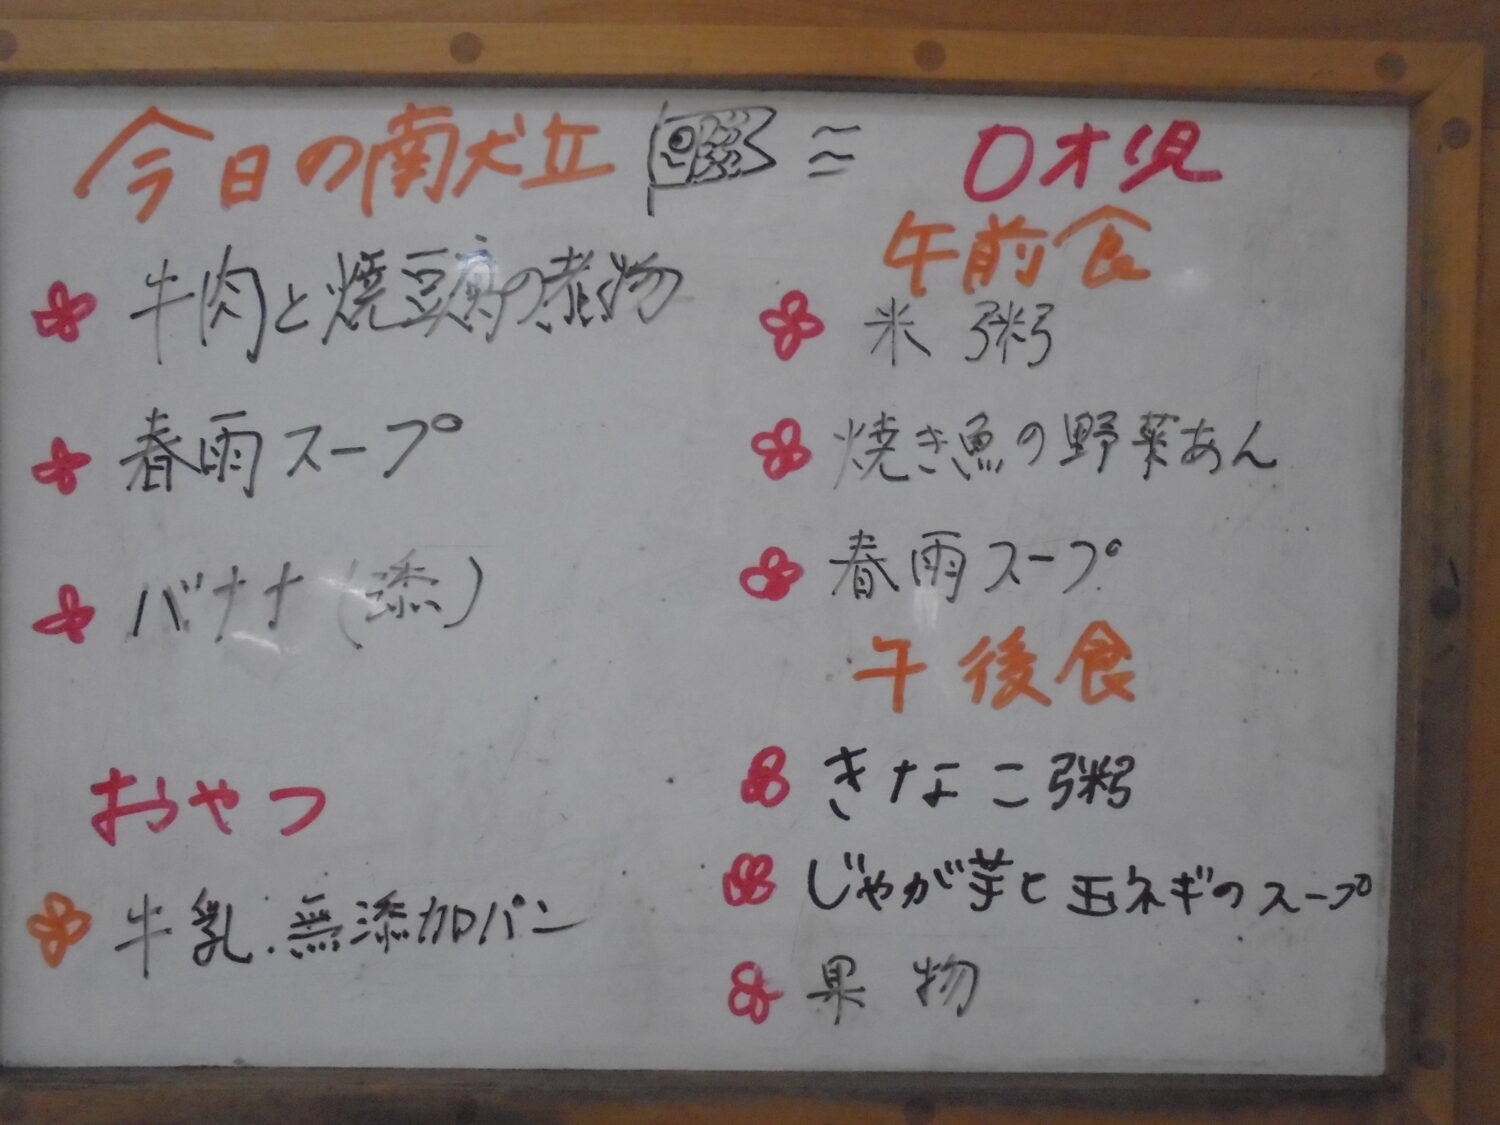 今日の献立
牛肉と焼豆腐の煮物
春雨スープ
バナナ(添)
おやつ
牛乳.無添加パン
0才児
午前食
米粥
焼き魚の野菜あん
春雨スープ
午後食
きなこ粥
じゃが芋と玉ネギのスープ
果物